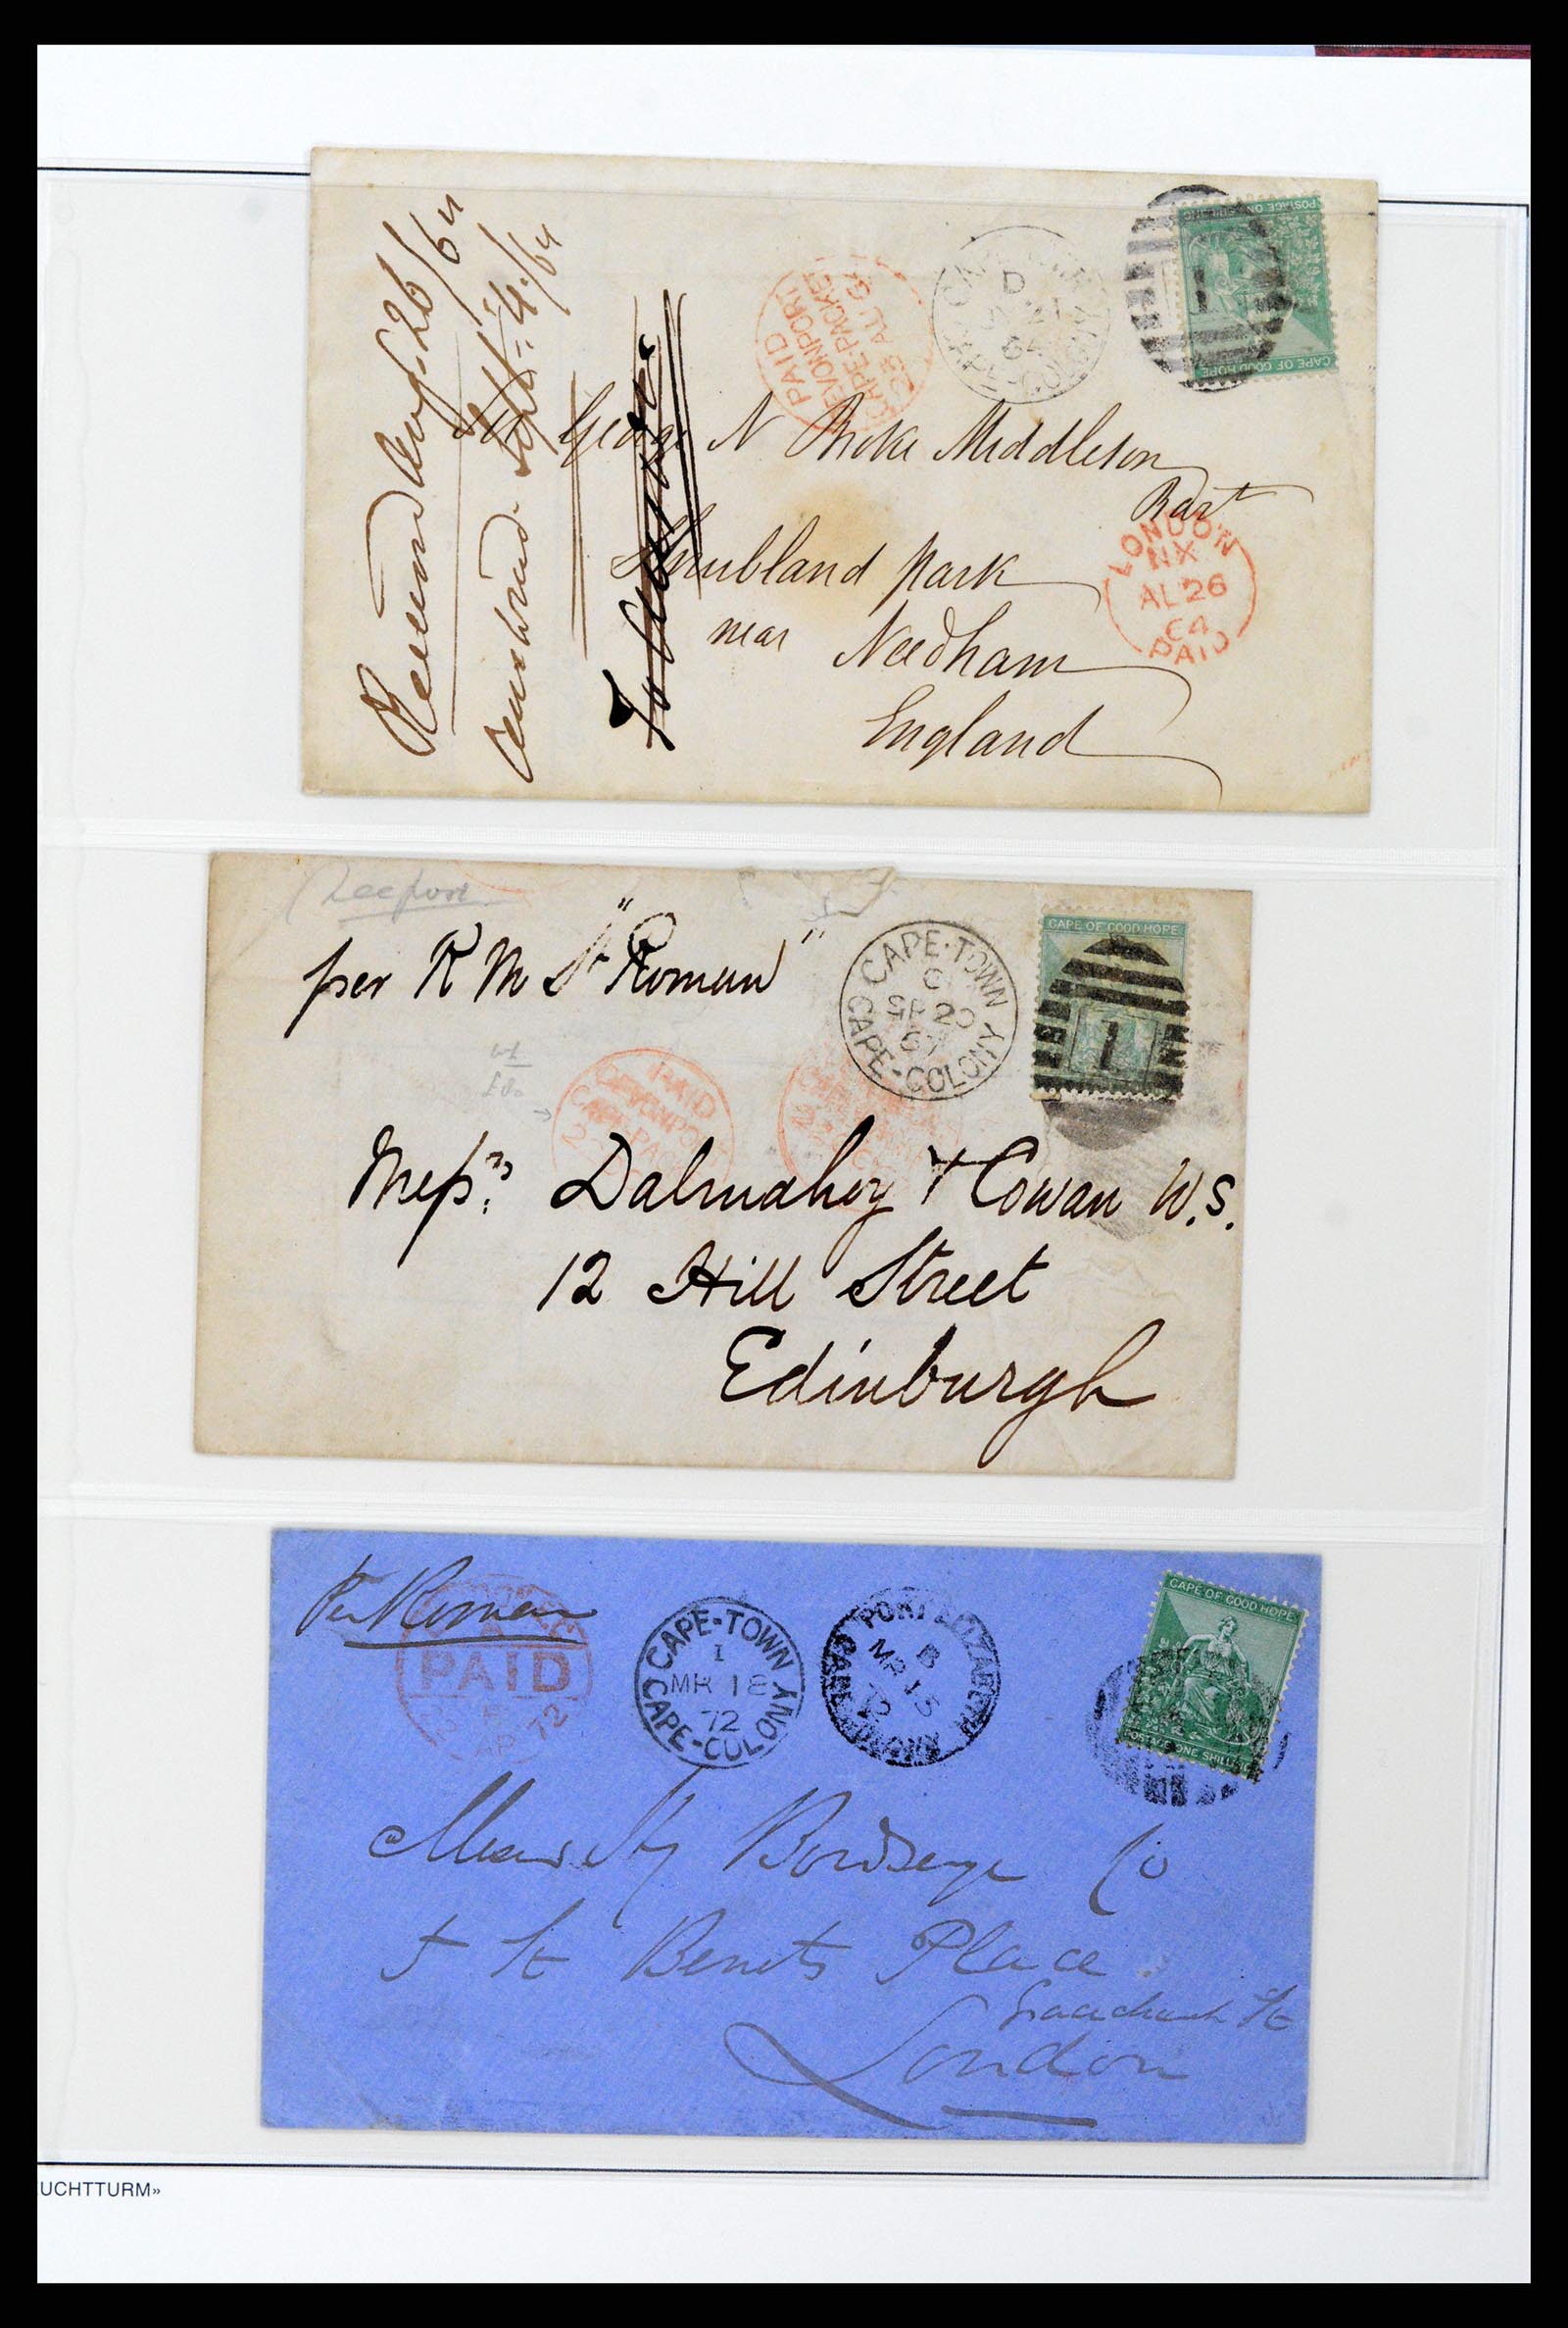 Received Aug. 26/64
Answered Sept. 4./64
PAID
DEVONPORT
CAPE-PACKET
AU 64
64
POSTAGE ONE SHILLING
CAPE OF GOOD HOPE
1
Sir George N Broke Middleton
Bart
Shrubland Park
near Needham
England
LONDON
NX
AU 26
64
PAID
per R M St "Roman"
CAPE-TOWN
SP 20
67
CAPE-COLONY
CAPE OF GOOD HOPE
1
PAID
DEVONPORT
CAPE-PACKET
Messrs Dalmahoy & Cowan W.S.
12 Hill Street
Edinburgh
Per Roman
PAID
AP 72
CAPE-TOWN
1
MR 18
72
CAPE-COLONY
PORT ELIZABETH
B
MR 15
72
CAPE COLONY
CAPE OF GOOD HOPE
POSTAGE ONE SHILLING
Messrs Hy Co
5 St Benets Place
Gracechurch St
London
UCHTTURM»